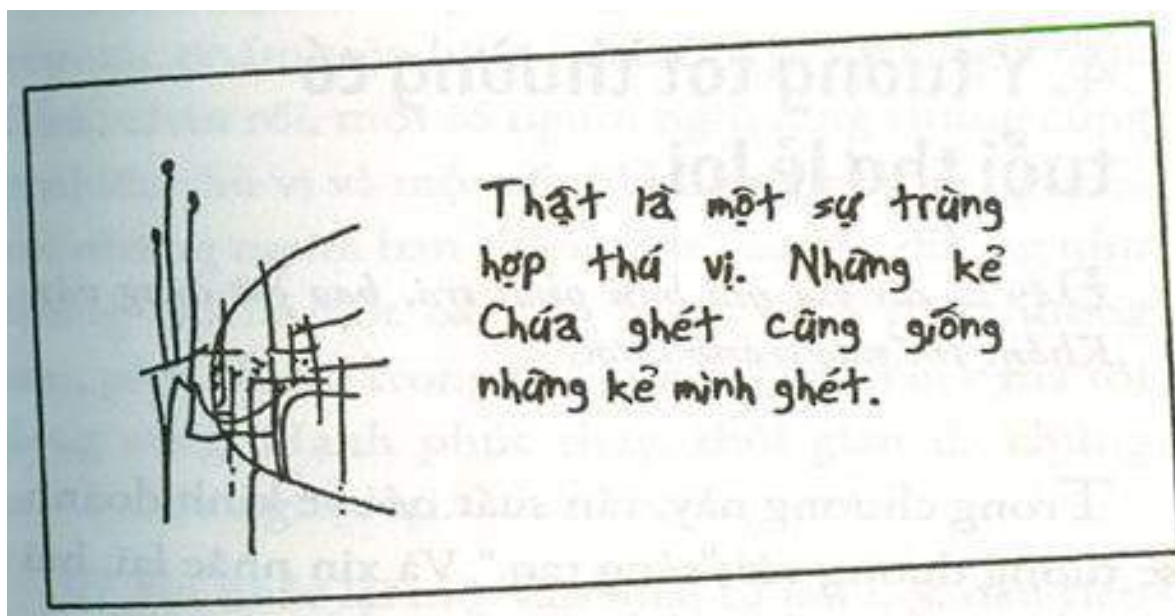 Thật là một sự trùng
hợp thú vị. Những kẻ
Chúa ghét cũng giống
những kẻ mình ghét.